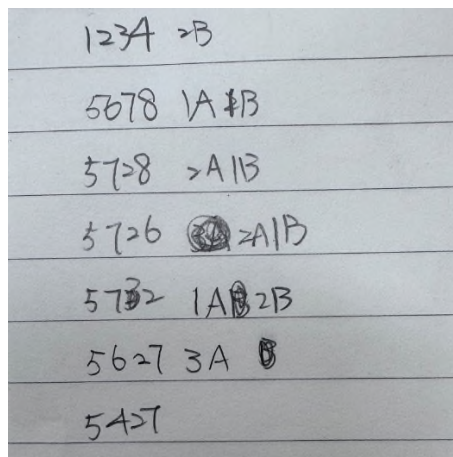 1234 2B
5678 1A1B
5728 2A1B
5726 2A1B
5732 1A2B
5627 3A
5427